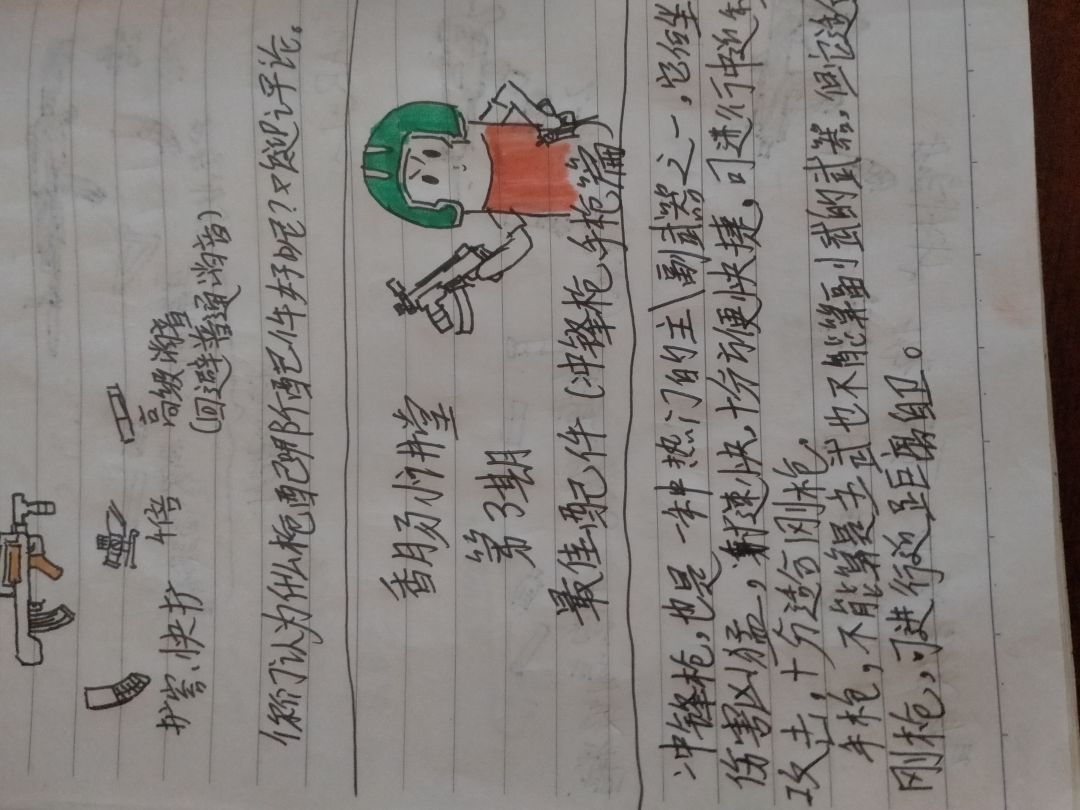 扩容、快扩
4倍
高级消音
(回避普通消音)
你们认为什么枪配那个配件好呢?欢迎评论。
香月夯小讲堂
第3期
最佳配件(冲锋枪、手枪篇)
冲锋枪,也是一种热门的主\副武器之一,它
伤害凶猛,射速快,十分方便快捷,可进行中近
攻击,十分适合刚枪。
手枪,不能算是主武也不能算副武的武器,但它近
刚枪,可进行近距离